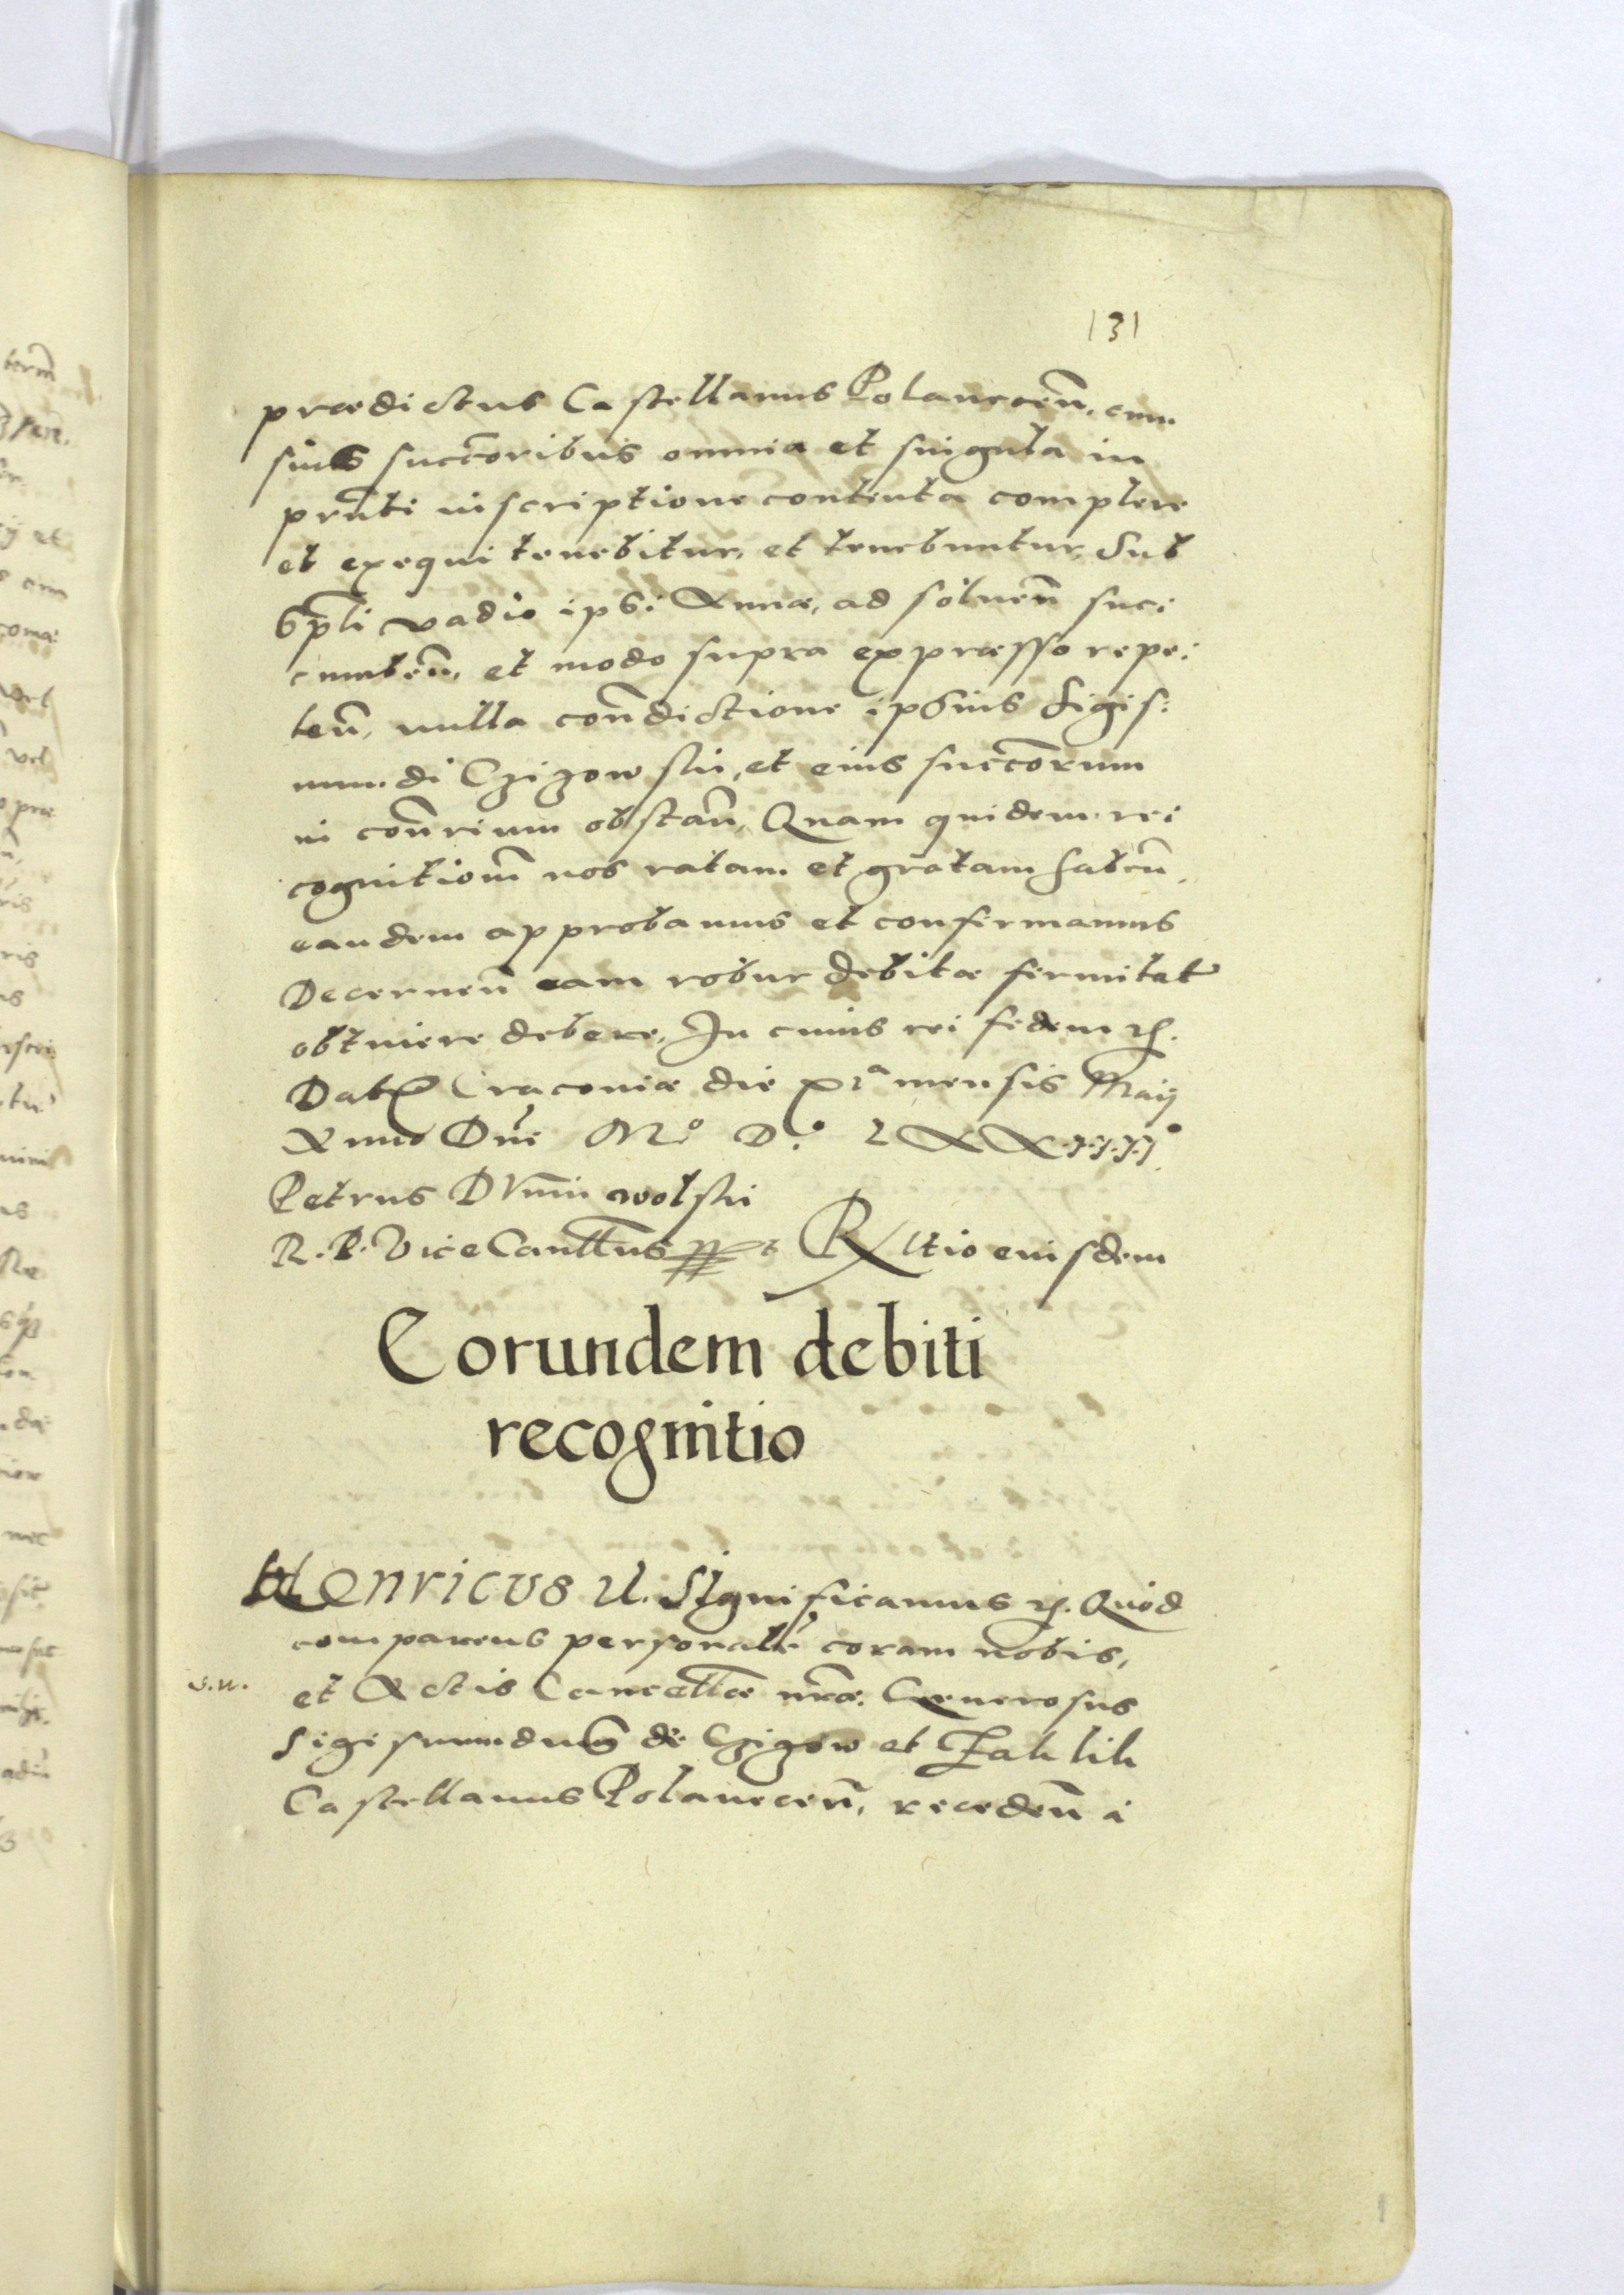 131
prædictus Castellanus Polanecen̄, cum
suis succ̄oribus omnia et singula in
prn̄ti inscriptione contenta complere
et exequi tenebitur, et tenebuntur, Sub
sp̄li vadio ipsi Annæ, ad soluen̄ suc:
cumben̄, et modo supra expræsso repe:
ten̄, nulla con̄dictione ipsius Sigis:
mundi Czizowski, et eius succ̄orum
in con̄rium obstan̄, Quam quidem re:
cognitionē nos ratam et gratam haben̄,
eandem approbamus et confirmamus
Decernen̄ eam robur debitæ firmitat
obtinere debere, In cuius rei fidem
Dat Cracoviæ die mensis Maij
Anno Dn̄i Mº D.º LXXiiijº
Petrus Dunin wolski
R. P. ViceCancll̄us Rltio eiusdem
Eorundem debiti
recognitio
Henricus Significamus Quod
comparens personalr̄ coram nobis,
s.n.
et Actis Cancellæ nr̄æ. Generosus
Sigismundus de Czizow et Zaklik
Castellanus Polanecen̄, receden̄ à